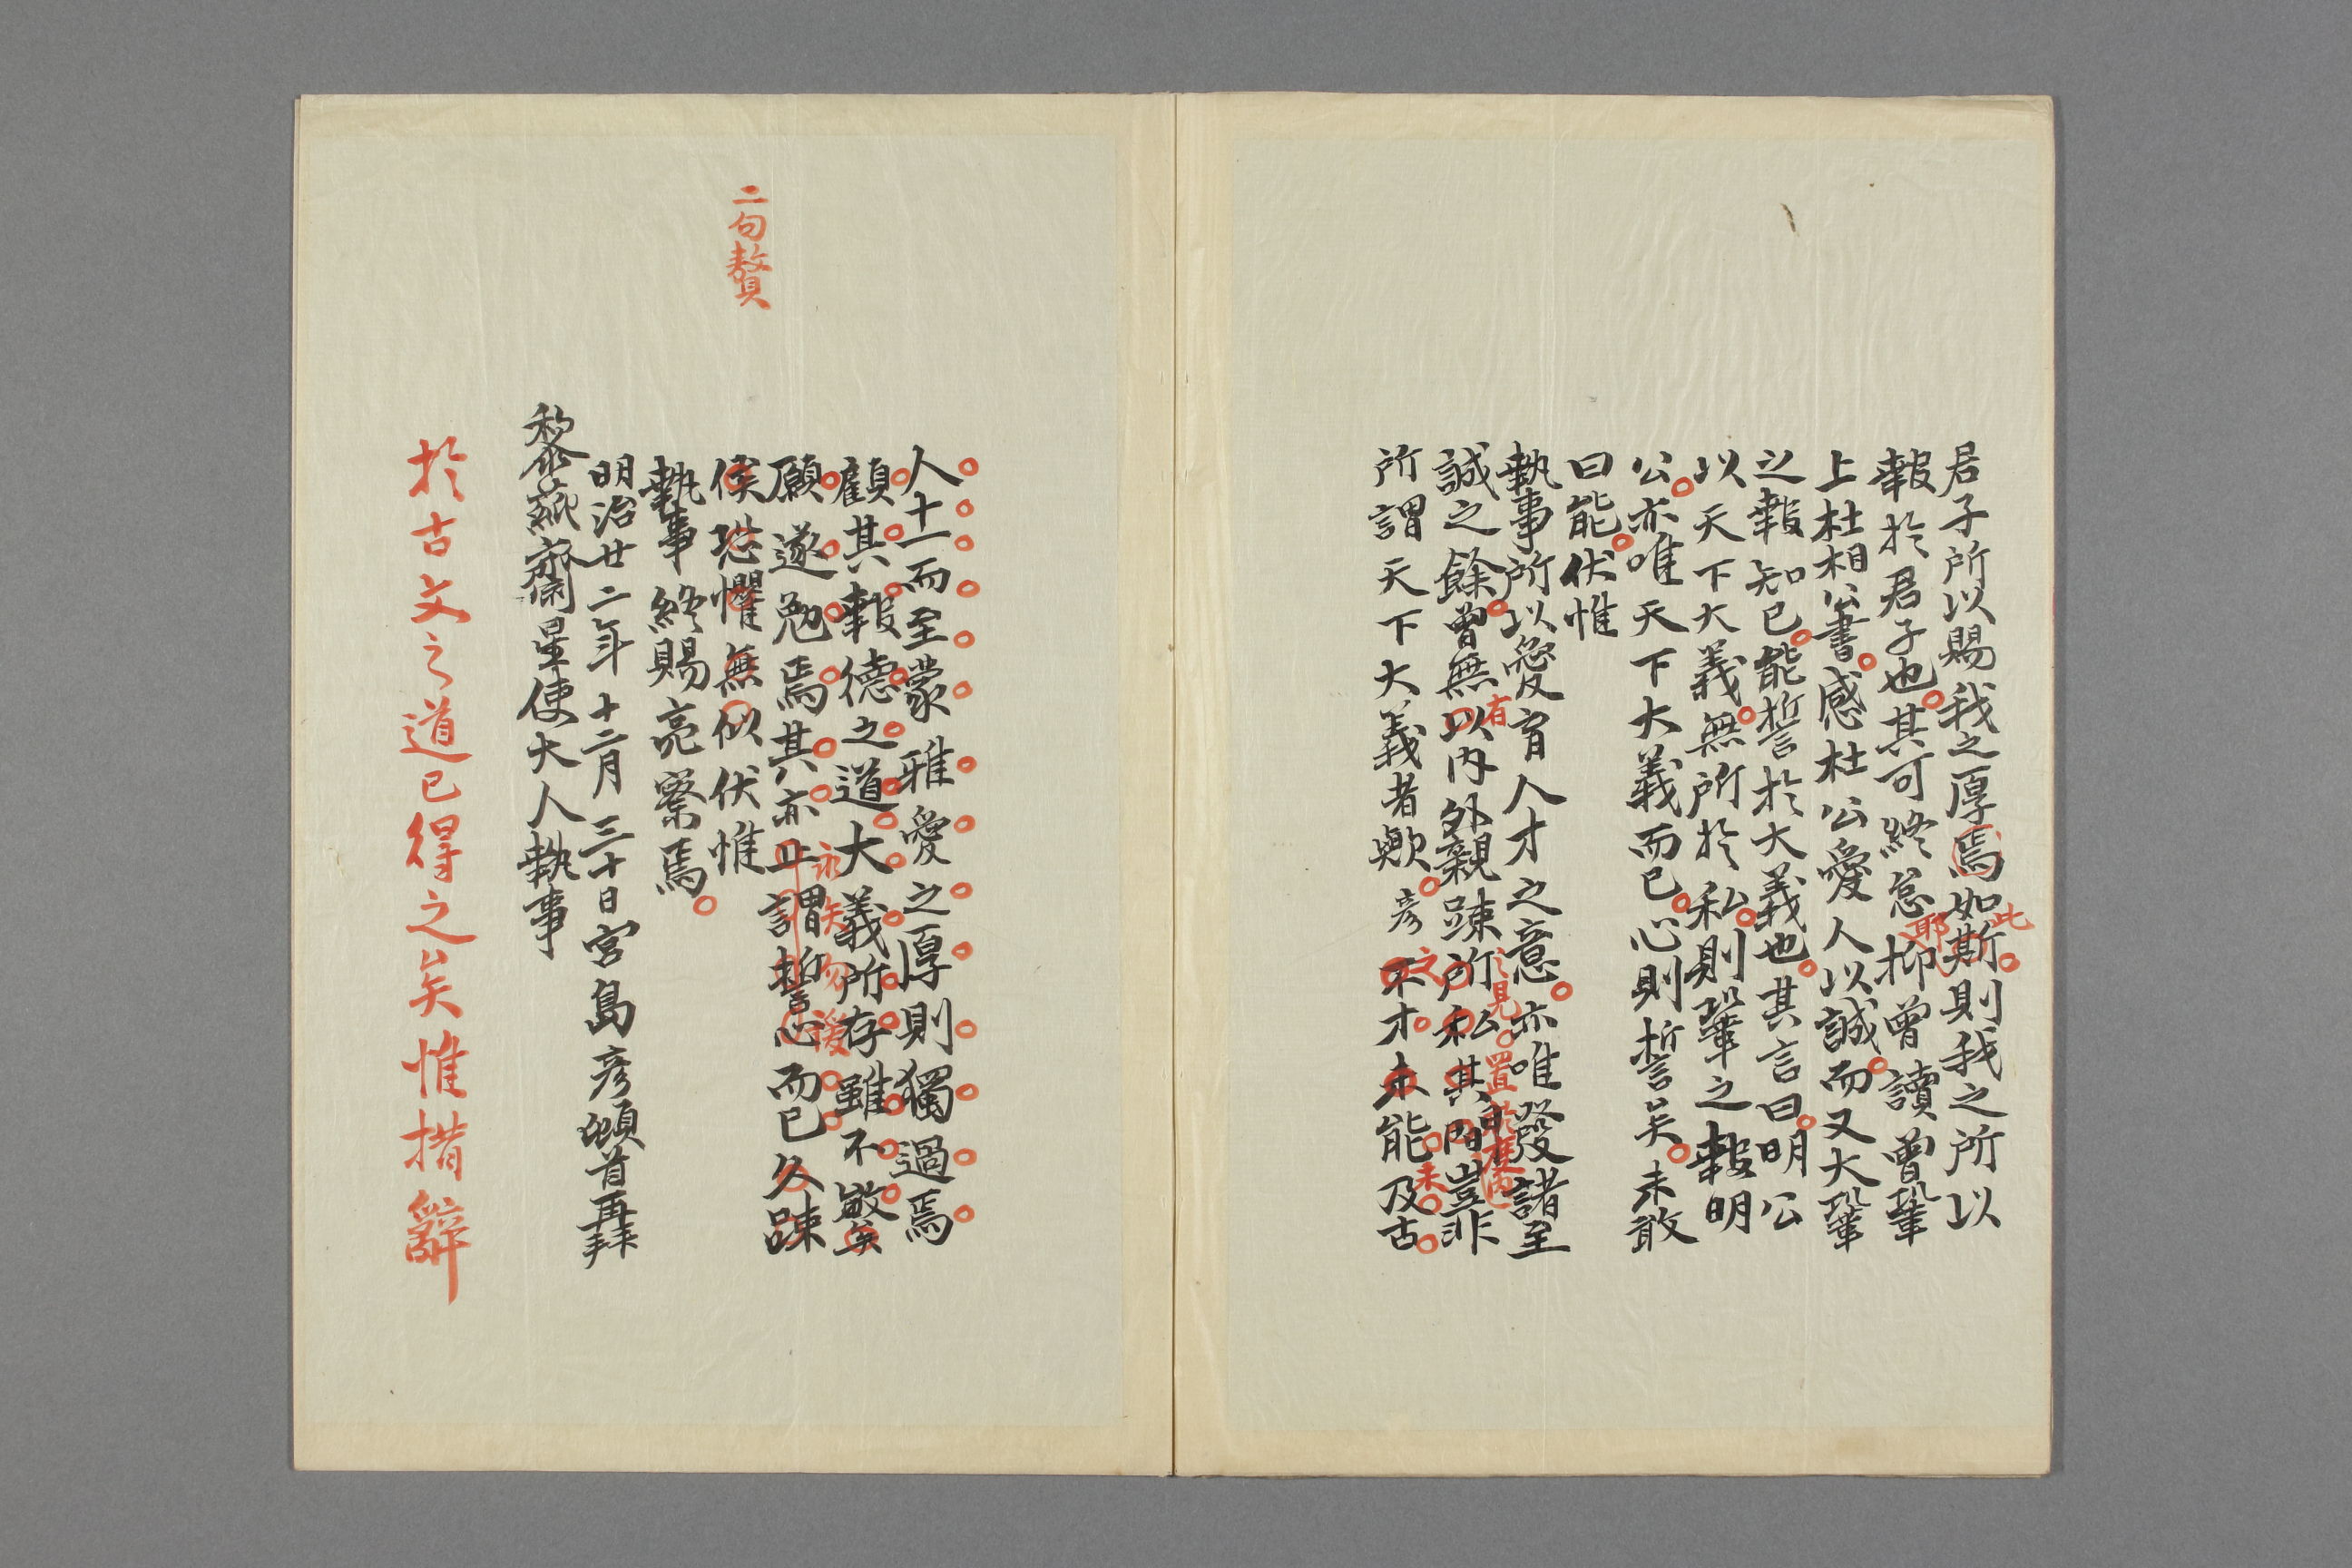 君子所以賜我之厚焉如斯則我之所以
此
報於君子也其可終怠抑曾讀曾鞏
耶
上杜相公書感杜公愛人以誠而又大鞏
之報知已能誓於大義也其言曰明公
以天下大義無所於私則鞏之報明
公亦唯天下大義而已心則誓矣未敢
曰能伏惟
執事所以愛育人才之意亦唯發諸至
誠之餘曾無以內外親踈所私其間豈非
有
之見置於其
所謂天下大義者歟彥不才未能及古
之
未
人十一而至蒙雅愛之厚則獨過焉
顧其報德之道大義所存雖不敏矣
願遂勉焉其亦止謂誓心而已久踈
永矢勿諼
二句贅
候恐懼無似伏惟
執事終賜亮察焉
明治廿二年十二月三十日宮島彥頓首再拜
黎蒓齋星使大人執事
於古文之道已得之矣惟措辭